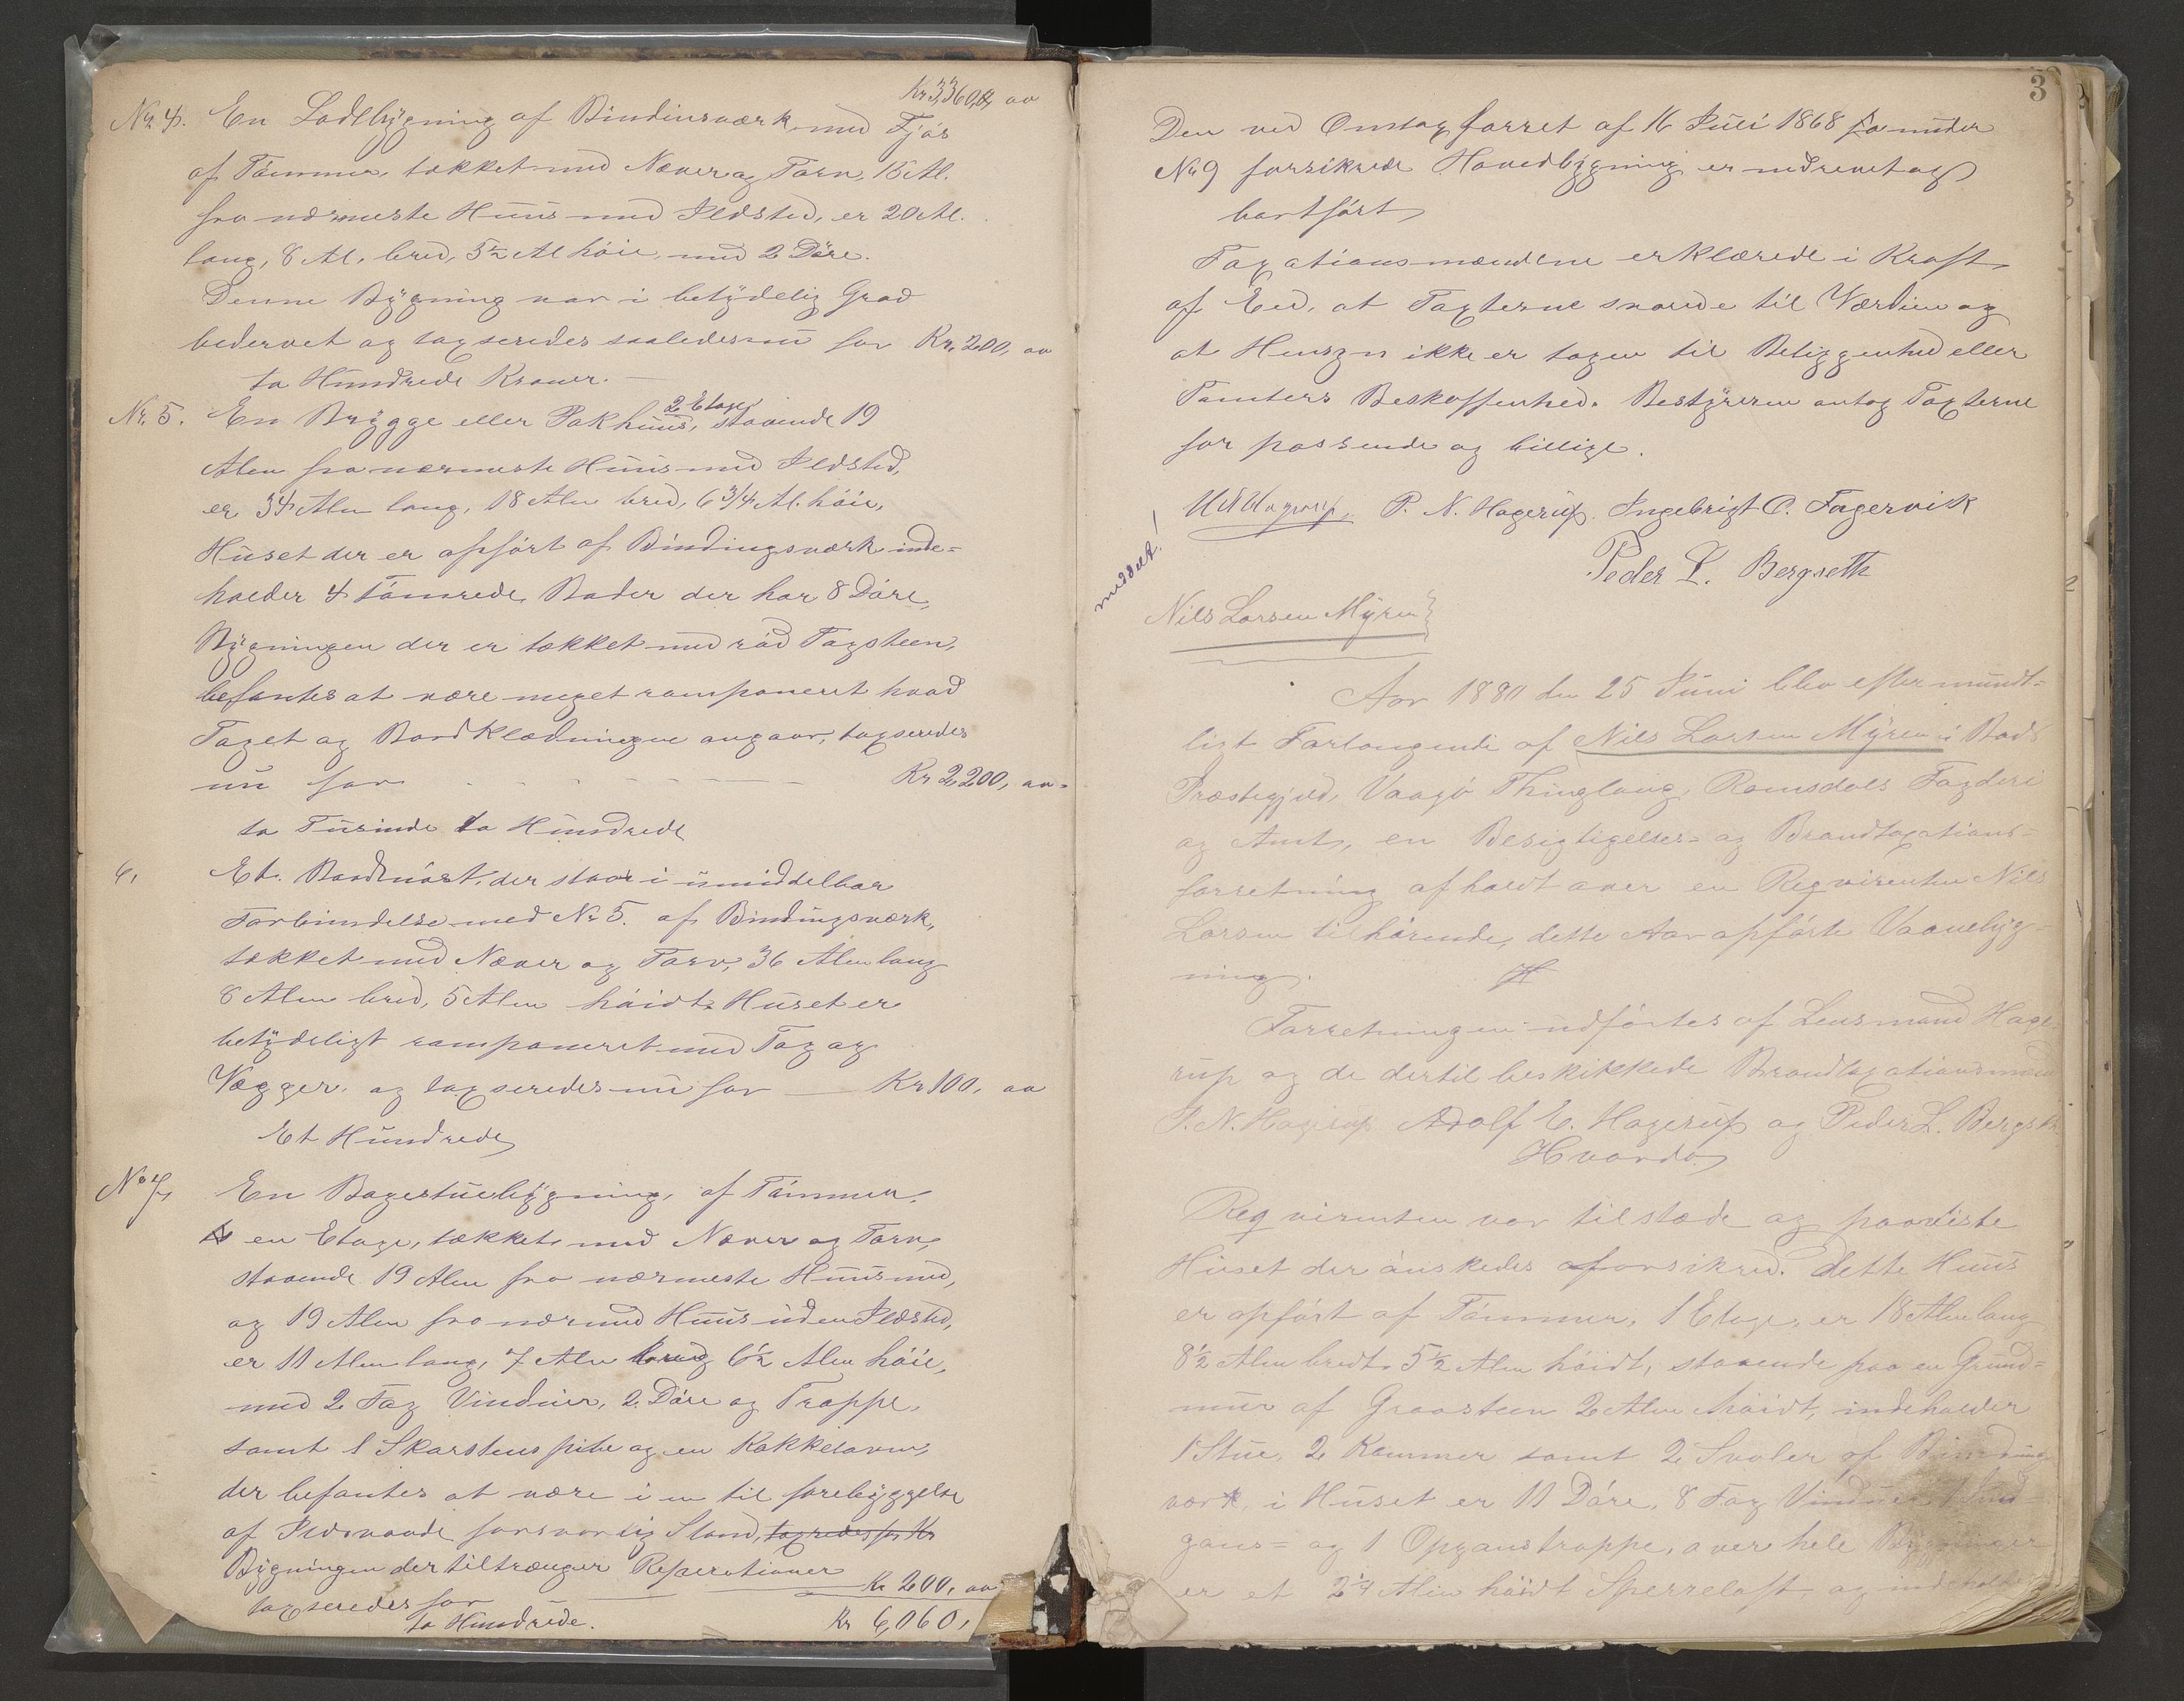 Kr 3,360, oo
No 4. En Ladebygning af Bindinsværk med Fjøs
af Tømmer, tækket med Næver og Torv, 15 Al.
fra nærmeste Huus med Ildsted, er 20 Al.
lang, 8 Al. bred, 5½ Al høie, med 2 Døre.
Denne Bygning var i betydelig Grad
bedervet og taxseredes saaledes nu for Kr. 200, oo
to Hundrede Kroner. —
No. 5. En Brygge eller Pakhuus, 2 Etager staaende 19
Alen fra nærmeste Huus med Ildsted,
er 34 Alen lang, 18 Alen bred, 6 3/4 Al. høie,
Huset der er opført af Bindingsværk inde=
holder 4 tømrede Boder der har 8 Døre,
Bygningen der er tækket med rød Tagsteen,
befantes at være meget ramponeret hvad
Taget og Bordklædningen angaar, taxseredes
nu for Kr 2,200, oo=
to Tusinde to Hundrede
6, Et Baadnøst, der staar i umiddelbar
Forbindelse med No 5. af Bindingsværk,
tækket med Næver og Torv, 36 Alen lang
8 Alen bred, 5 Alen høidt. Huset er
betydeligt ramponeret med Tag og
Vægger, og taxseredes nu for — Kr 100, oo
Et Hundrede
No 7, En Bagestuebygning, af Tømmer,
en Etage, tækket med Næver og Torv,
staaende 19 Alen fra nærmeste Huus med,
og 19 Alen fra nærmed Huus uden Ildsted,
er 11 Alen lang, 7 Alen bred 6½ Alen høie,
med 2 Fag Vinduer, 2 Døre og Trappe,
samt 1 Skorstenspibe og en Kakkelovn,
der befantes at være i en til forebyggelse
af Ildsvaade forsvarlig Stand, taxredes for Kr
Bygningen der tiltrænger Reperationer
taxseredes for — Kr 200, oo
to Hundrede. Kr 6,060,
3
Den ved Omtaxforret af 16 Juli 1868 under
No 9 forsikrede Hovedbygning er nedrevet og
bortført
Taxationsmændene erklærede i Kraft
af Eed, at Taxterne svarede til Værdien og
at Hensyn ikke er tagen til Beliggenhed eller
Tomters Beskaffenhed. Bestyreren antog Taxterne
for passende og billige.
P. N. Hagerup. Ingebrigt O. Fagervik
Peder L. Bergseth
meddelt!
Nils Larsen Myren
Aar 1880 den 25 Juni blev efter mundt=
ligt Forlangende af Nils Larsen Myren i Bods
Præstegjæld, Vaagø Thinglaug, Romsdals Fogderi
og Amt, en Besigtigelses= og Brandtaxations=
forretning afholdt over en Reqvirenten Nils
Larsen tilhørende, dette Aar opførte Vaanebyg=
ning.
Forretningen udførtes af Lensmand Hage
rup og de dertil beskikkede Brandtaxationsmænd
P. N. Hagerup Adolf E. Hagerup og Peder L. Bergseth
Hvorda
Reqvirenten var tilstæde og paaviste
Huset der ønskedes forsikred. Dette Huus
er opført af Tømmer, 1 Etage, er 18 Alen lang
8½ Alen bredt 5½ Alen høidt, staaende paa en Grund=
mur af Graasteen 2 Alen høidt, indeholder
1 Stue, 2 Kammer samt 2 Svaler af Bindings
værk, i Huset er 11 Døre, 8 Fag Vinduer 1 Ind
gans= og 1 Opganstrappe, over hele Bygningen
er et 2¼ Alen høidt Sperreloft og indeholder